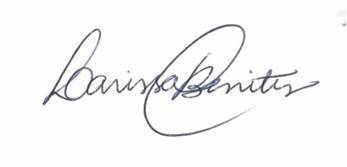 Larissa Benites